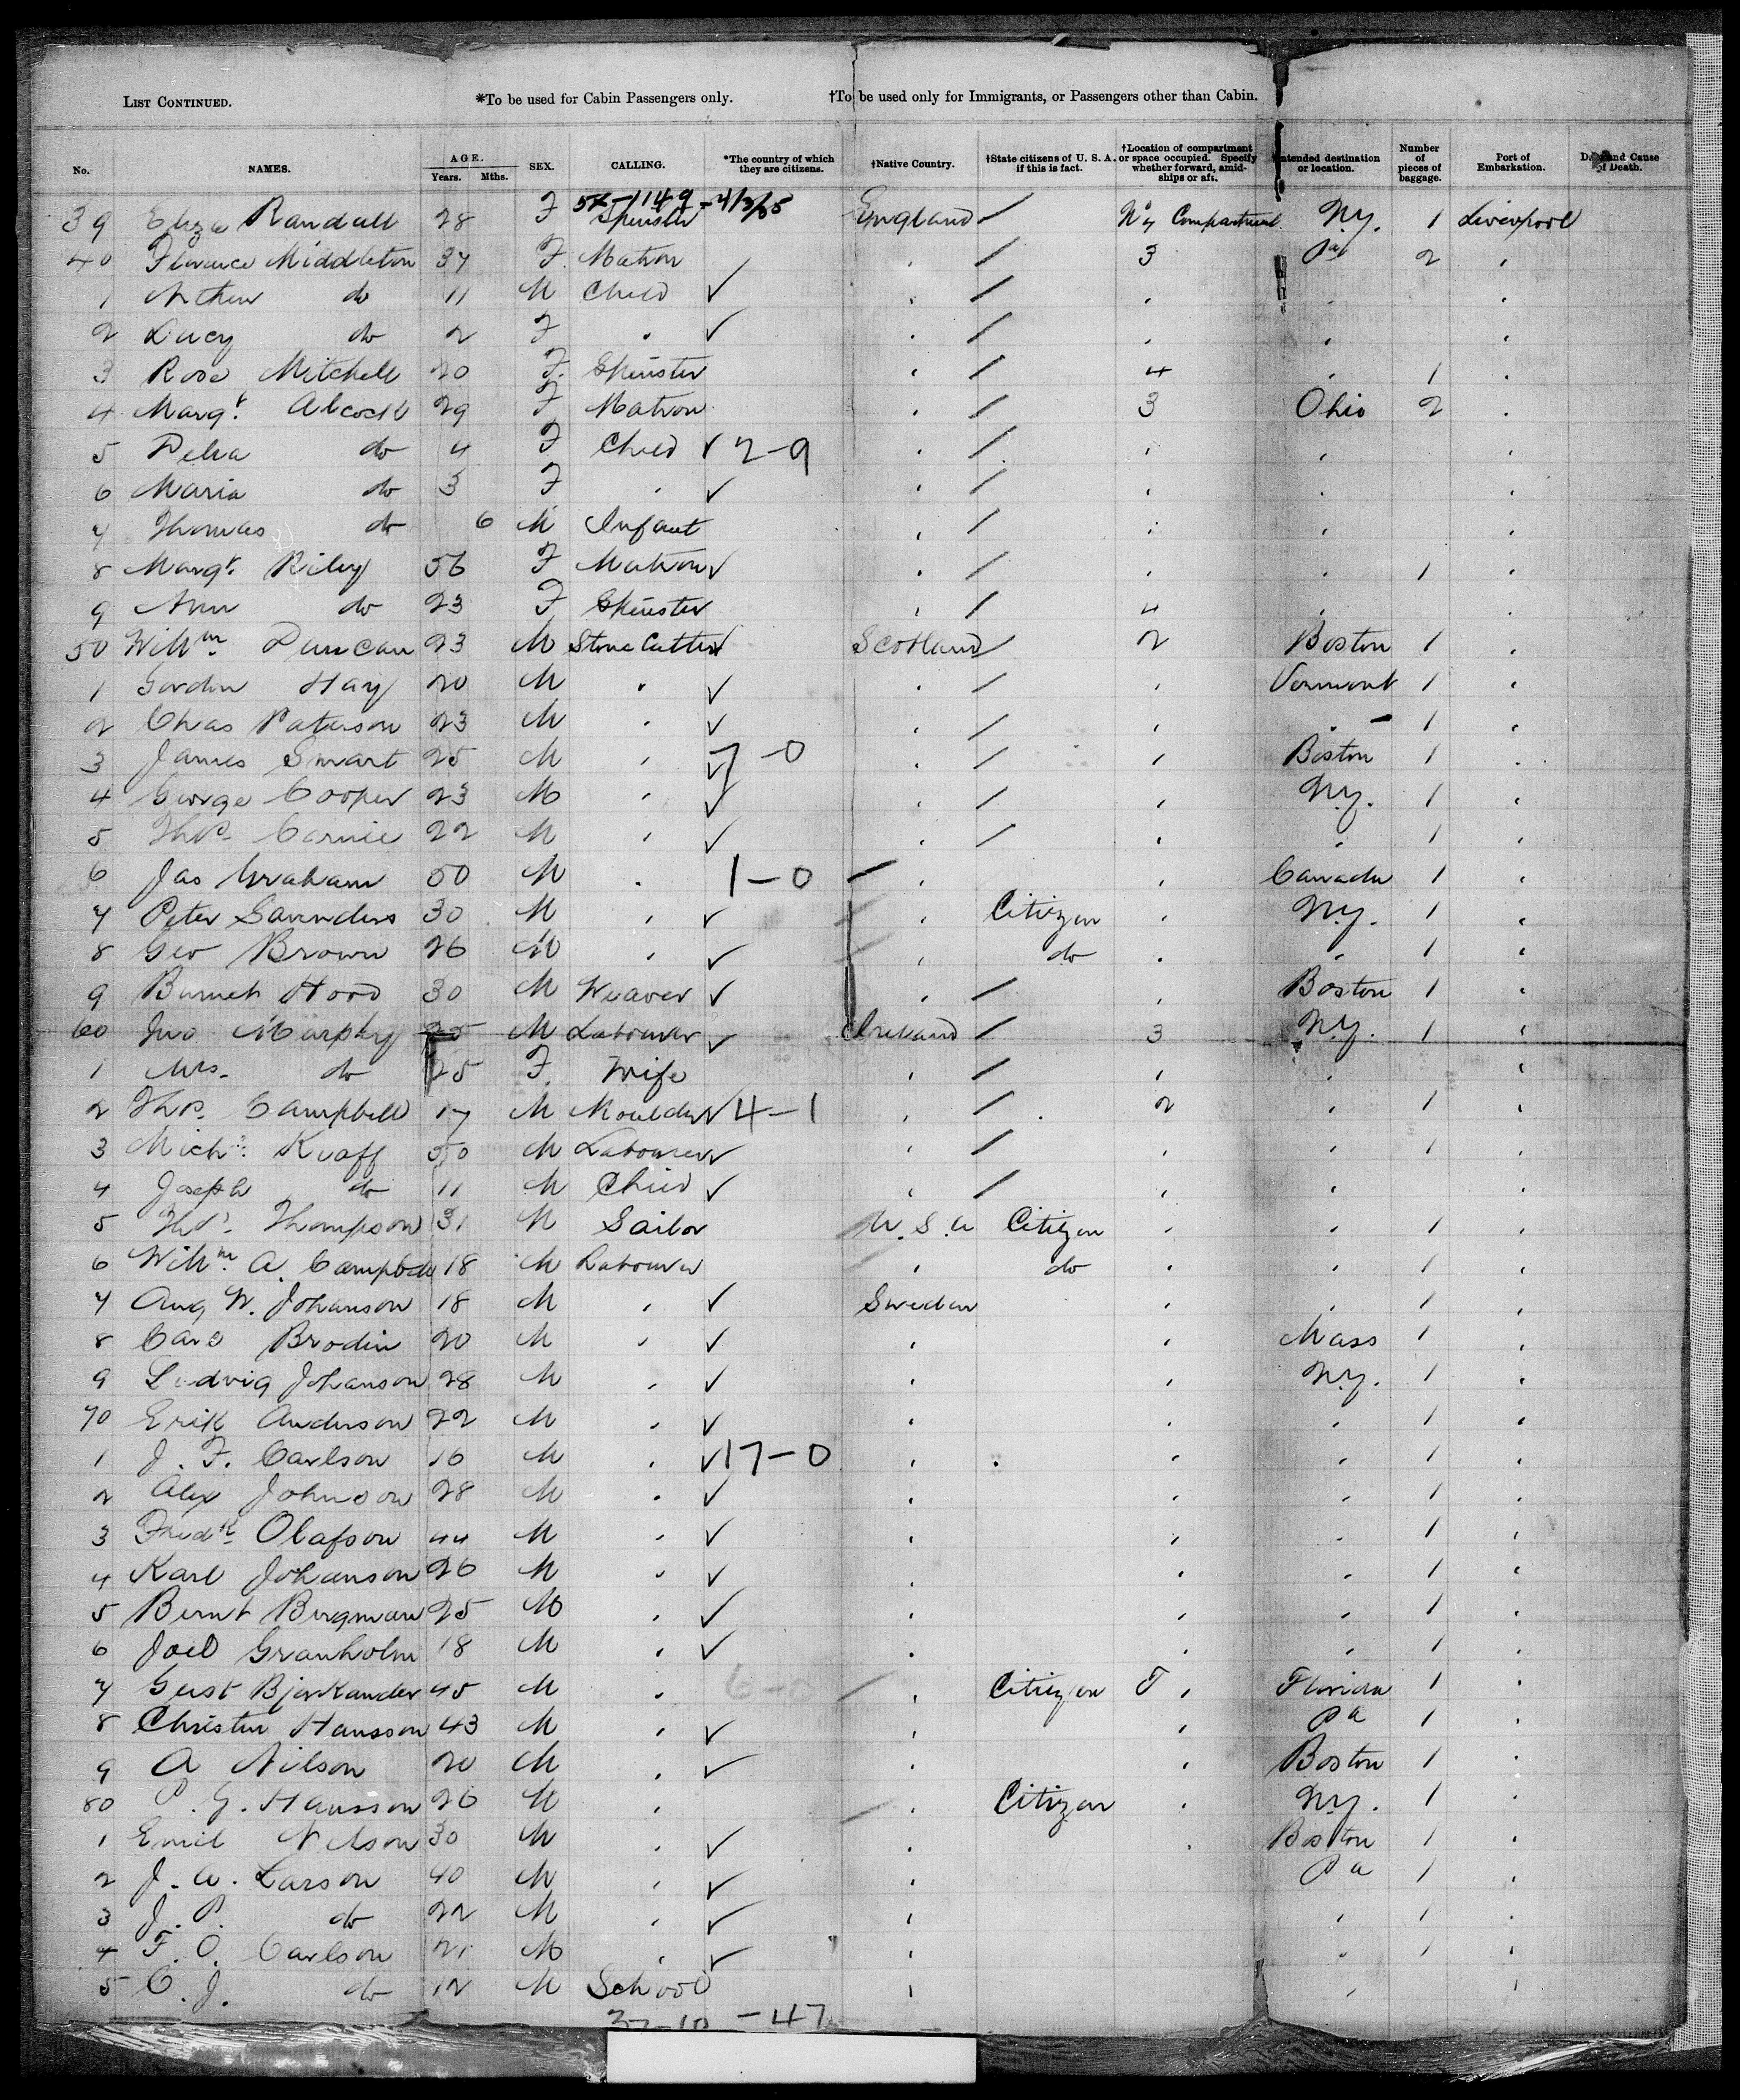 LIST CONTINUED. *To be used for Cabin Passengers only. †To be used only for Immigrants, or Passengers other than Cabin.
No. NAMES. AGE. Years. Mths. SEX. CALLING. *The country of which they are citizens. †Native Country. †State citizens of U. S. A. if this is fact. †Location of compartment or space occupied. Specify whether forward, amidships or aft. Intended destination or location. Number of pieces of baggage. Port of Embarkation. Date and Cause of Death.
39 Eliza Randall 28 F Spinster England / No 4 Compartment N.y. 1 Liverpool
40 Florence Middleton 37 F. Matron / 3 Pa 2 "
1 Arthur do 11 M Child ✓ " / " " "
2 Lucy do 2 F " ✓ " / " " "
3 Rose Mitchell 20 F. Spinster " / 4 " 1 "
4 Margt. Alcock 29 F Matron " / 3 Ohio 2 "
5 Delia do 4 F Child ✓ 2-9 " / " " "
6 Maria do 3 F " ✓ " / " " "
7 Thomas do 6 M Infant " / " " "
8 Margt. Riley 56 F Matron ✓ " / " " 1 "
9 Ann do 23 F Spinster " / 4 " "
50 Willm. Duncan 23 M Stone Cutter ✓ Scotland / 2 Boston 1 "
1 Gordon Hay 20 M " ✓ " / " Vermont 1 "
2 Chas Paterson 23 M " ✓ " / " " 1 "
3 James Smart 25 M " ✓ 7-0 " / " Boston 1 "
4 George Cooper 23 M " ✓ " / " N.y. 1 "
5 Thos. Carnie 22 M " ✓ " / " " 1 "
6 Jas Graham 50 M " 1-0 " " Canada 1 "
7 Peter Saunders 30 M " ✓ " Citizen " N.y. 1 "
8 Geo Brown 26 M " ✓ " do " " 1 "
9 Burnet Hood 30 M Weaver ✓ " / " Boston 1 "
60 Jno Murphy 25 M Labourer ✓ Ireland / 3 N.y. 1 "
1 Mrs. do 25 F. Wife " / " " "
2 Thos. Campbell 17 M Moulder ✓ 4-1 " / 2 " 1 "
3 Michl. 50 M Labourer ✓ " / " " 1 "
4 Joseph do 11 M Child ✓ " / " " "
5 Thos. Thompson 31 M Sailor U.S.A Citizen " " 1 "
6 Willm. A. Campbell 18 M Labourer " do " " 1 "
7 Aug W. Johanson 18 M " ✓ Sweden " " 1 "
8 Carl Brodin 20 M " ✓ " " Mass 1 "
9 Ludvig Johanson 28 M " ✓ " " N.y. 1 "
70 Erik Anderson 22 M " ✓ " " " 1 "
1 J. F. Carlson 16 M " ✓ 17-0 " " " 1 "
2 Alex Johnson 28 M " ✓ " " " 1 "
3 Fredk. Olafson 44 M " ✓ " " " 1 "
4 Karl Johanson 26 M " ✓ " " " 1 "
5 Bernt Bergman 25 M " ✓ " " " 1 "
6 Joel Granholm 18 M " ✓ " " " 1 "
7 Gust Bjorkander 45 M " " Citizen " Florida 1 "
8 Christen Hansson 43 M " ✓ " " Pa 1 "
9 A Nilson 20 M " ✓ " " Boston 1 "
80 P. G. Hansson 26 M " " Citizen " N.y. 1 "
1 Emil Nilson 30 M " ✓ " " Boston 1 "
2 J. A. Larson 40 M " ✓ " Pa 1 "
3 J. P. do 22 M " ✓ " " 1 "
4 F. O. Carlson 21 M " ✓ " " 1 "
5 C. J. do 12 M School " " "
37-10 -47